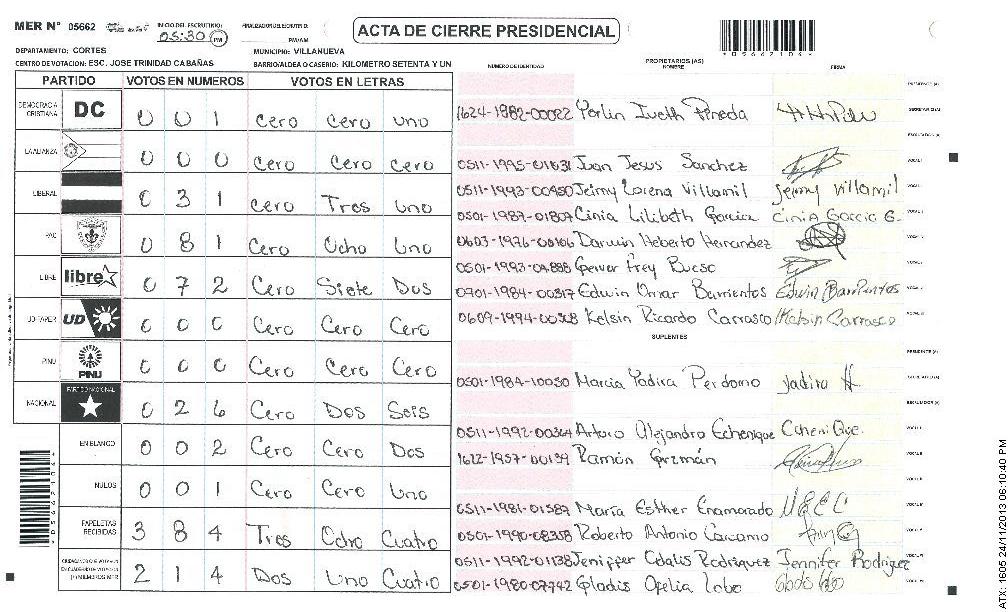 MER N° 05662 INICIO DEL ESCRUTINIO: 05:30 PM FINALIZACION DEL ESCRUTINIO: PM/AM ACTA DE CIERRE PRESIDENCIAL
*05662104*
DEPARTAMENTO: CORTES MUNICIPIO: VILLANUEVA
CENTRO DE VOTACION: ESC. JOSE TRINIDAD CABAÑAS BARRIO/ALDEA O CASERIO: KILOMETRO SETENTA Y UN
NUMERO DE IDENTIDAD PROPIETARIOS (AS) NOMBRE FIRMA
PARTIDO VOTOS EN NUMEROS VOTOS EN LETRAS
DEMOCRACIA CRISTIANA DC 0 0 1 Cero Cero uno
LA ALIANZA 0 0 0 Cero Cero cero
LIBERAL 0 3 1 Cero Tres uno
PAC 0 8 1 Cero Ocho Uno
LIBRE libre 0 7 2 Cero Siete Dos
UD-FAPER UD 0 0 0 Cero Cero Cero
PINU PINU 0 0 0 Cero Cero Cero
NACIONAL PARTIDO NACIONAL 0 2 6 Cero Dos Seis
EN BLANCO 0 0 2 Cero Cero Dos
NULOS 0 0 1 Cero Cero Uno
PAPELETAS RECIBIDAS 3 8 4 Tres Ocho Cuatro
2 1 4 Dos Uno Cuatro
PRESIDENTE (A)
1624-1982-00022 Yorlin Iveth Pineda
SECRETARIO (A)
ESCRUTADOR (A)
0511-1995-01631 Juan Jesus Sanchez
VOCAL I
0511-1993-00450 Jeimy Lorena Villamil Jeimy Villamil
0501-1987-01807 Cinia Lilibeth Garcia Cinia Garcia G.
0603-1976-00106 Darwin Heberto Hernandez
0501-1993-04888 Gerver Frey Bueso
0901-1984-00317 Edwin Omar Barrientos Edwin Barrientos
0609-1994-00308 Kelsin Ricardo Carrasco Kelsin Carrasco
SUPLENTES
PRESIDENTE (A)
0501-1984-10050 Marcia Yadira Perdomo Yadira H
SECRETARIO (A)
ESCRUTADOR (A)
0511-1992-00364 Arturo Alejandro Echenique Echenique.
1622-1957-00139 Ramón Guzmán
0511-1981-01587 María Esther Enamorado MEEC
0501-1990-08358 Roberto Antonio Carcamo
0511-1992-01138 Jennifer Odalis Rodriguez Jennifer Rodriguez
0501-1980-07742 Gladis Ofelia Lobo
ATX:1605 24/11/2013 06:10:40 PM